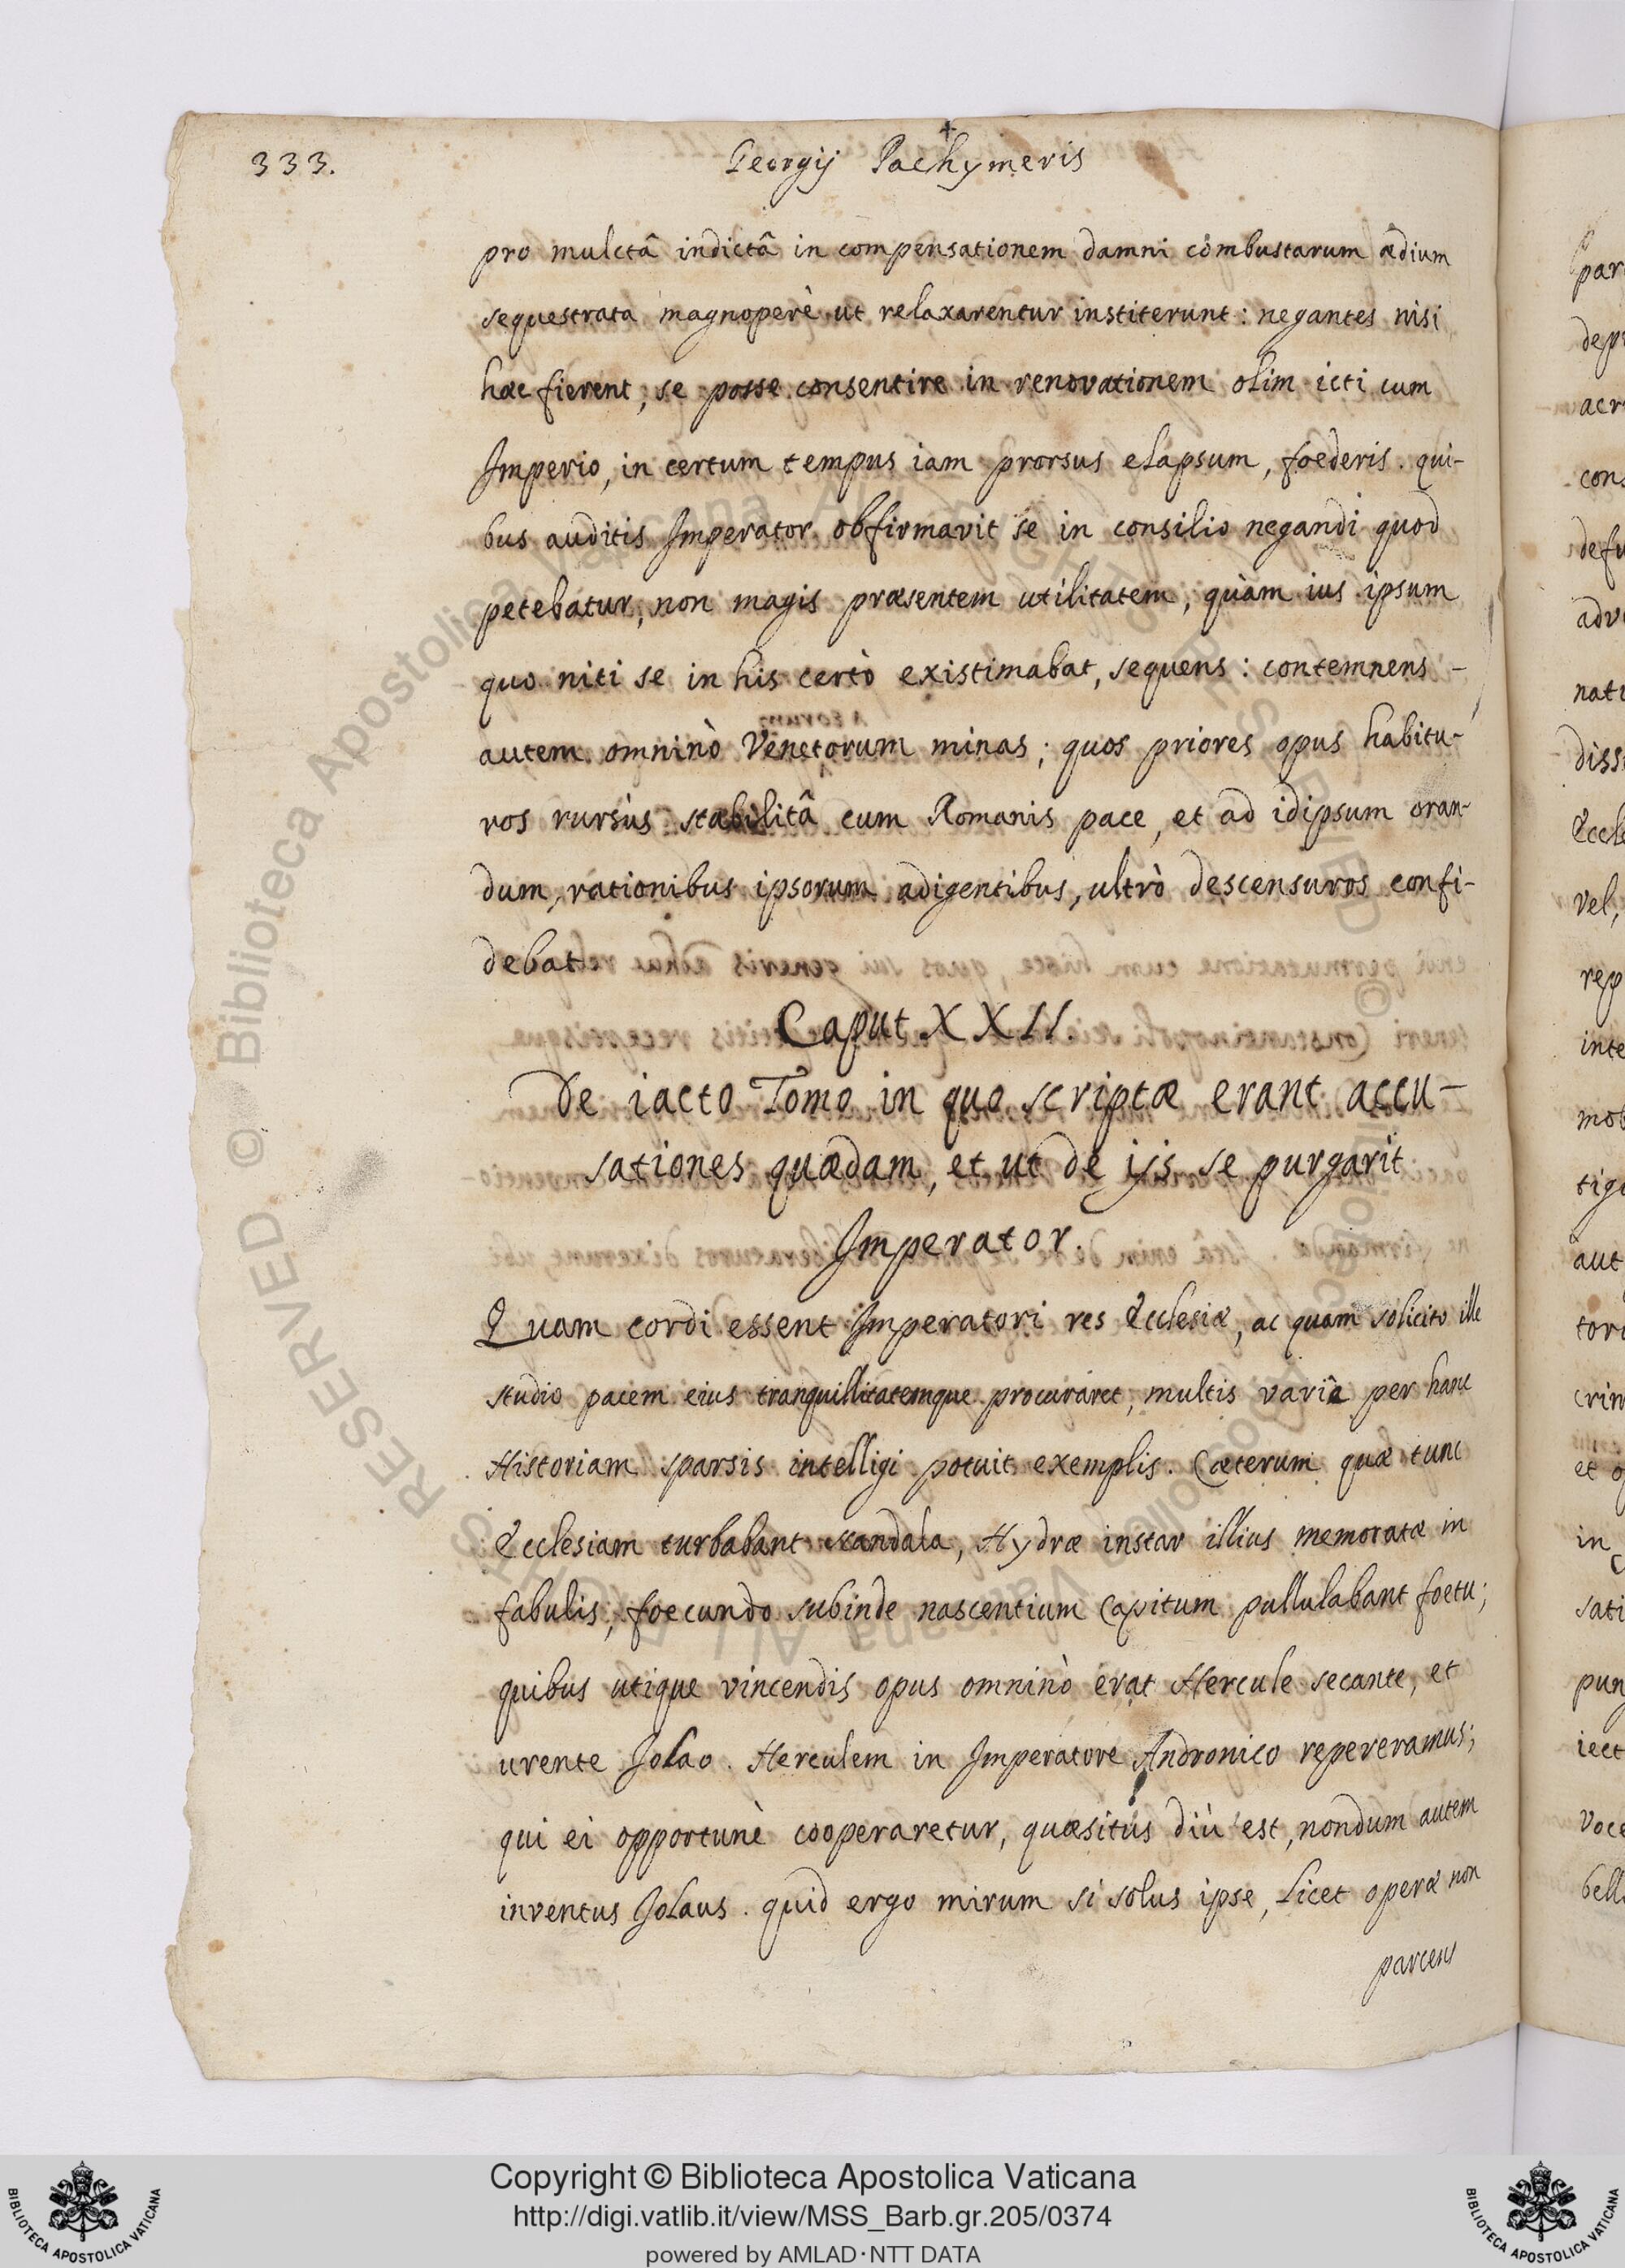 333.
Georgij Pachymeris
pro mulctâ indictâ in compensationem damni combustarum ædium
sequestrata magnoperè ut relaxarentur institerunt: negantes nisi
hæc fierent, se posse consentire in renovationem olim icti cum
Imperio, in certum tempus iam prorsus elapsum, foederis. qui-
bus auditis Imperator obfirmavit se in consilio negandi quod
petebatur, non magis præsentem utilitatem, quàm ius ipsum
quo niti se in his certò existimabat, sequens: contemnens -
autem omninò Venetorum minas; quos priores opus habitu-
ros rursùs stabilitâ cum Romanis pace, et ad idipsum oran-
dum, rationibus ipsorum adigentibus, ultrò descensuros confi-
debat
Caput XXII.
De iacto Tomo in quo scriptæ erant accu-
sationes quædam, et ut de ijs se purgarit
Imperator.
Quam cordi essent Imperatori res Ecclesiæ, ac quam solicito ille
studio pacem eius tranquillitatemque procuraret, multis variè per hanc
Historiam sparsis intelligi potuit exemplis. Cæterum quæ tunc
Ecclesiam turbabant scandala, Hydræ instar illius memoratæ in
fabulis, foecundo subinde nascentium Capitum pullulabant foetu;
quibus utique vincendis opus omninò erat Hercule secante, et
urente Jolao. Herculem in Imperatore Andronico repereramus;
qui ei opportunè cooperaretur, quæsitus diù est, nondum autem
inventus Jolaus. quid ergo mirum si solus ipse, licet operæ non
parcens
par
acr
cons
nati
vel,
rep
inte
aut
et o
in
sati
iect
voce
© Biblioteca Apostolica Vaticana ALL RIGHTS RESERVED
Copyright © Biblioteca Apostolica Vaticana
http://digi.vatlib.it/view/MSS_Barb.gr.205/0374
powered by AMLAD·NTT DATA
BIBLIOTECA APOSTOLICA VATICANA
BIBLIOTECA APOSTOLICA VATICANA